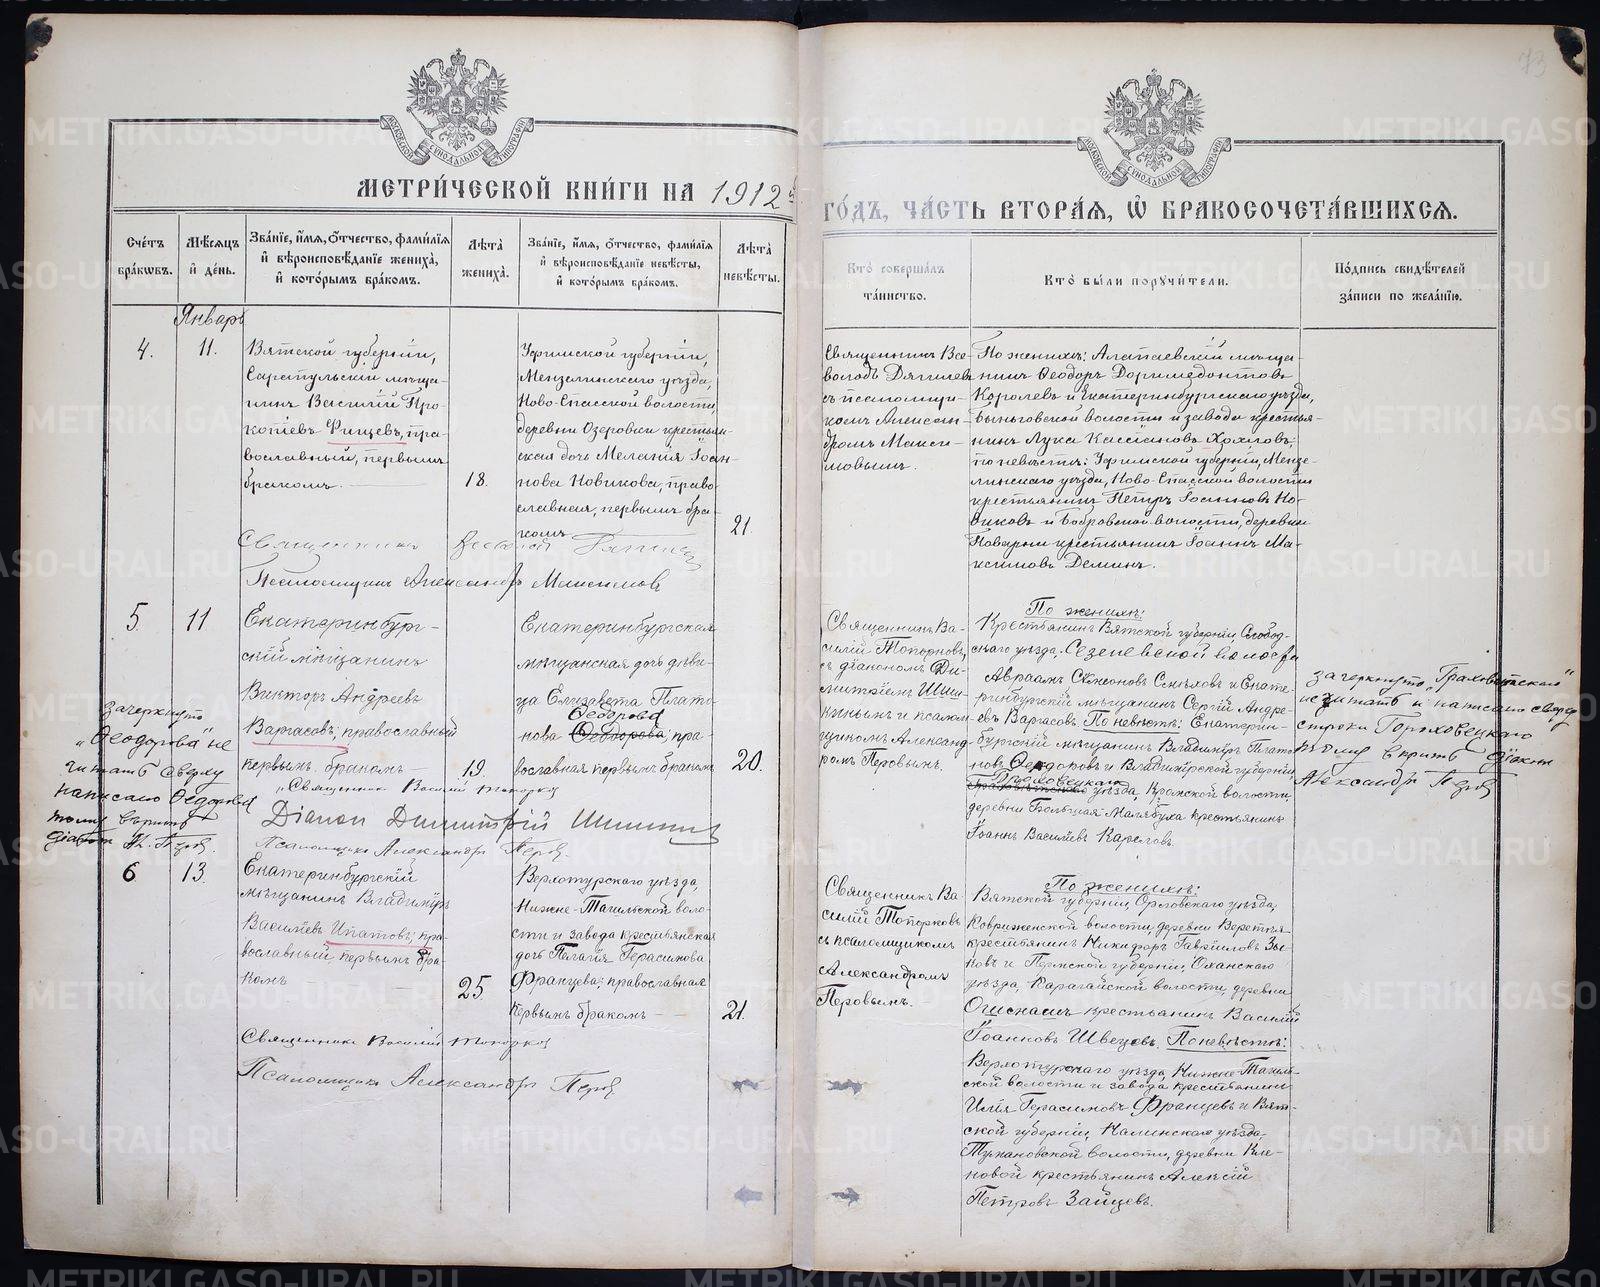 73
МОСКОВСКОЙ СѴНОДАЛЬНОЙ ТИПОГРАФІИ
МОСКОВСКОЙ СѴНОДАЛЬНОЙ ТИПОГРАФІИ
МЕТРИ́ЧЕСКОЙ КНИ́ГИ НА 1912 й
ГО́ДЪ, ЧА́СТЬ ВТОРА́Я, Ѡ҆ БРАКОСОЧЕТА́ВШИХСЯ.
Сче́тъ бра́кѡвъ.
Мѣ́сяцъ и҆ де́нь.
Зва́нїе, и҆́мя, ѻ҆́тчество, фами́лїя и҆ вѣроисповѣ́данїе жениха̀, и҆ кото́рымъ бра́комъ.
Лѣ́та̀ жениха̀.
Зва́нїе, и҆́мя, ѻ҆́тчество, фами́лїя и҆ вѣроисповѣ́данїе невѣ́сты, и҆ кото́рымъ бра́комъ.
Лѣ́та̀ невѣ́сты.
Кто̀ соверша́лъ та́инство.
Кто̀ бы́ли порꙋчи́тели.
По́дпись свидѣ́телей за́писи по жела́нїю.
Январь
4.
11.
Вятской губерніи,
Сарапульскій мѣща-
нинъ Василій Про-
копіевъ Фищевъ, пра-
вославный, первымъ
бракомъ.
18.
Уфимской губерніи,
Мензелинскаго уѣзда,
Ново-Спасской волости,
деревни Озеровки крестьян-
ская дочь Меланія Іоан-
нова Новикова, право-
славная, первымъ бра-
комъ
21.
Священникъ Все-
володъ Дягилевъ
съ псаломщи-
комъ Алексан-
дромъ Макси-
мовымъ.
По женихѣ: Алапаевскій мѣща-
нинъ Ѳеодоръ Доримедонтовъ
Королевъ и Екатеринбургскаго уѣзда,
Быньговской волости и завода крестья-
нинъ Лука Кассіановъ Хохловъ;
по невѣстѣ: Уфимской губерніи, Мензе-
линскаго уѣзда, Ново-Спасской волости
крестьянинъ Петръ Іоанновъ Но-
виковъ и Бобровской волости, деревни
Поварни крестьянинъ Іоаннъ Ма-
ксимовъ Деминъ.
Священникъ Всеволод Дягилев
Псаломщикъ Александръ Максимов
5.
11
Екатеринбург-
скій мѣщанинъ
Викторъ Андреевъ
Варгасовъ, православный
первымъ бракомъ
19.
Екатеринбургская
мѣщанская дочь дѣви-
ца Елизавета Плато-
Ѳеодорова
нова Ѳеодорова, пра-
вославная первымъ бракомъ
20.
Священникъ Ва-
силій Топорковъ,
съ діакономъ Ди-
митріемъ Шиш-
кинымъ и псалом-
щикомъ Александ-
ромъ Перовымъ.
По женихѣ:
Крестьянинъ Вятской губерніи, Слобод-
скаго уѣзда, Сезеневской волости
Авраамъ Симеоновъ Смѣховъ и Екате-
ринбургскій мѣщанинъ Сергій Андре-
евъ Варгасовъ. По невѣстѣ: Екатерин-
бургскій мѣщанинъ Владиміръ Плато-
новъ Ѳеодоровъ и Владимірской губерніи,
Гороховецкаго
уѣзда, Кромской волости,
деревни Большая Малябуха крестьянинъ
Іоаннъ Васильевъ Карповъ.
зачеркнуто
„Ѳеодорова" не
читать сверху
написано Ѳеодорова
тому вѣрить
діаконъ Ал. Перов.
зачеркнуто
не читать и написано сверху
строки Гороховецкаго
тому вѣрить діаконъ
Александръ Перов
Священникъ Василій Топорков
Діакон Димитрій Шишкин
Псаломщикъ Александръ Перов.
6
13.
Екатеринбургскій
мѣщанинъ Владиміръ
Васильевъ Ипатовъ, пра-
вославный первымъ бра-
комъ
25
Верхотурскаго уѣзда,
Нижне-Тагильской воло-
сти и завода крестьянская
дочь Пелагія Герасимова
Францева, православная
первымъ бракомъ
21.
Священникъ Ва-
силій Топорковъ
съ псаломщикомъ
Александромъ
Перовымъ.
По женихѣ:
Вятской губерніи, Орловскаго уѣзда,
Коврижской волости, деревни Веретья
крестьянинъ Никифоръ Гавріиловъ Зы-
новъ и Пермской губерніи, Оханскаго
уѣзда, Карагайской волости, деревни
крестьянинъ Василій
Іоанновъ Швецовъ. По невѣстѣ:
Верхотурскаго уѣзда Нижне-Тагиль-
ской волости и завода крестьянинъ
Илія Герасимовъ Францевъ и Вят-
ской губерніи,
волости, деревни Кле-
новой крестьянинъ Алексій
Петровъ Зайцевъ.
Священникъ Василій Топорков
Псаломщикъ Александръ Перов
METRIKI.GASO-URAL.RU